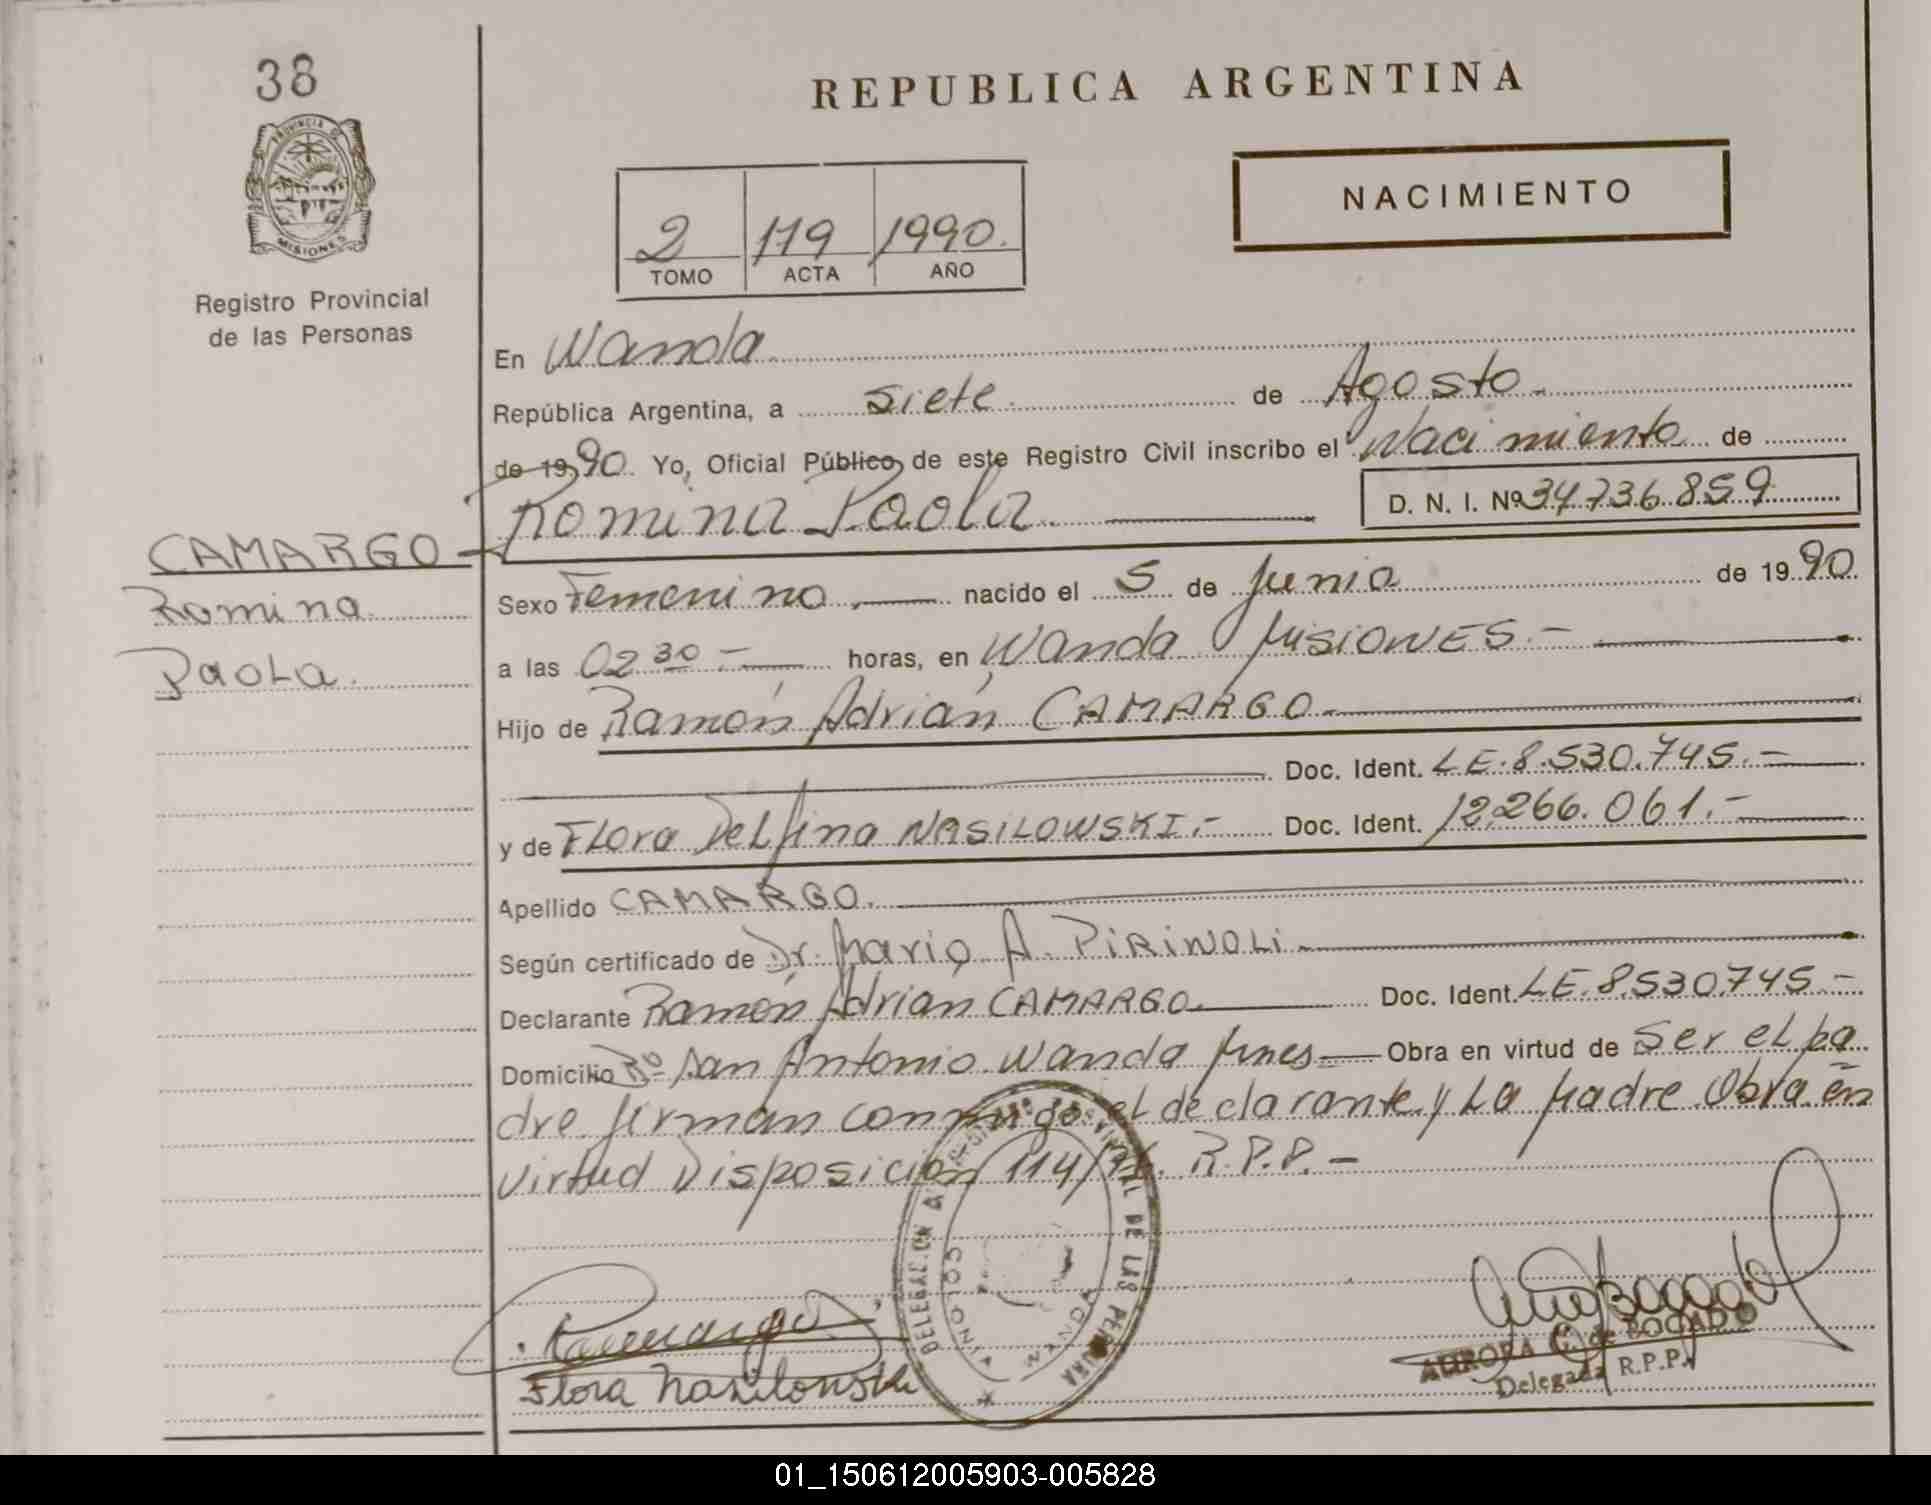 38
PROVINCIA DE
MISIONES
Registro Provincial
de las Personas
REPUBLICA ARGENTINA
NACIMIENTO
2 119 1990.
TOMO ACTA AÑO
En Wanda
República Argentina, a siete de Agosto.
de 1990. Yo, Oficial Público de este Registro Civil inscribo el Nacimiento de
Romina Paola D. N. I. Nº 34.736.859
CAMARGO
Romina
Paola.
Sexo Femenino nacido el 5 de Junio de 1990
a las 02 30 horas, en Wanda MISIONES.-
Hijo de Ramón Adrián CAMARGO.
Doc. Ident. LE.8.530.745.-
y de Flora Delfina NASILOWSKI.- Doc. Ident. 12.266.061.-
Apellido CAMARGO.
Según certificado de Dr. Mario A. PIRINOLI
Declarante Ramón Adrian CAMARGO. Doc. Ident. LE.8.530.745.-
Domicilio Bº San Antonio Wanda Mnes Obra en virtud de Ser el pa
dre firman conmigo el declarante y La Madre Obra en
virtud Disposición 114/ R.P.P.-
DELEGACION DE LAS PERSONAS
WANDA
Camargo
Flora Nasilowski
AURORA C. de BOGADO
Delegada R.P.P.
01_150612005903-005828